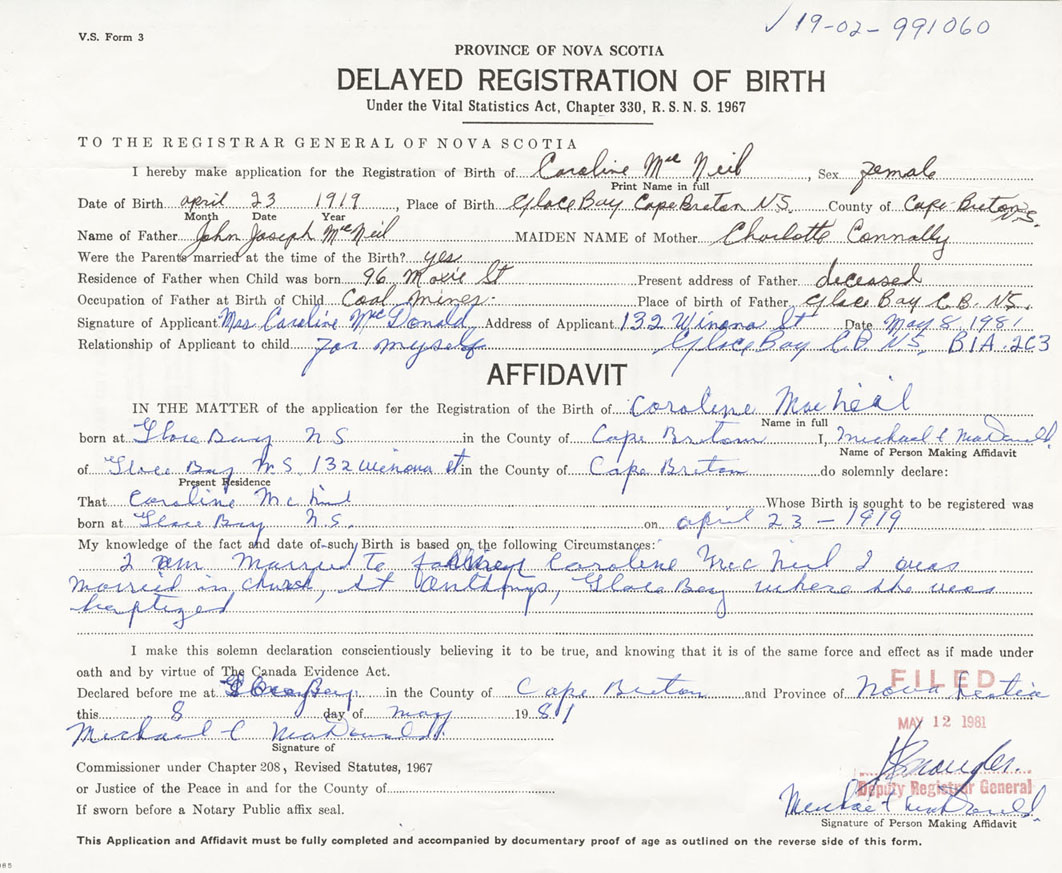 V.S. Form 3
✓ 19-02-991060
PROVINCE OF NOVA SCOTIA
DELAYED REGISTRATION OF BIRTH
Under the Vital Statistics Act, Chapter 330, R.S.N.S. 1967
TO THE REGISTRAR GENERAL OF NOVA SCOTIA
I hereby make application for the Registration of Birth of Caroline McNeil, Sex female
Print Name in full
Date of Birth april 23 1919, Place of Birth Glace Bay Cape Breton N.S. County of Cape Breton N.S.
Month Date Year
Name of Father John Joseph McNeil MAIDEN NAME of Mother Charlotte Connally
Were the Parents married at the time of the Birth? yes
Residence of Father when Child was born 96 St Present address of Father deceased
Occupation of Father at Birth of Child Coal Miner. Place of birth of Father Glace Bay C.B. N.S.
Signature of Applicant Mrs Caroline McDonald Address of Applicant 132 Winona St Date May 8 1981
Relationship of Applicant to child for myself Glace Bay C.B. N.S. B1A 2C3
AFFIDAVIT
IN THE MATTER of the application for the Registration of the Birth of Caroline MacNeil
Name in full
born at Glace Bay N S in the County of Cape Breton I, Michael C MacDonald
Name of Person Making Affidavit
of Glace Bay N.S. 132 Winona St in the County of Cape Breton do solemnly declare:
Present Residence
That Caroline Mc Neil Whose Birth is sought to be registered was
born at Glace Bay N.S. on april 23 - 1919
My knowledge of the fact and date of such Birth is based on the following Circumstances:
I am Married to Caroline McNeil I was
married in church, St Anthonys, Glace Bay where she was
baptized
I make this solemn declaration conscientiously believing it to be true, and knowing that it is of the same force and effect as if made under
oath and by virtue of The Canada Evidence Act.
Declared before me at Glace Bay in the County of Cape Breton and Province of Nova Scotia
FILED
this 8 day of may 1981
MAY 12 1981
Michael C MacDonald
Signature of
Commissioner under Chapter 208, Revised Statutes, 1967
or Justice of the Peace in and for the County of
Deputy Registrar General
If sworn before a Notary Public affix seal.
Michael C MacDonald
Signature of Person Making Affidavit
This Application and Affidavit must be fully completed and accompanied by documentary proof of age as outlined on the reverse side of this form.